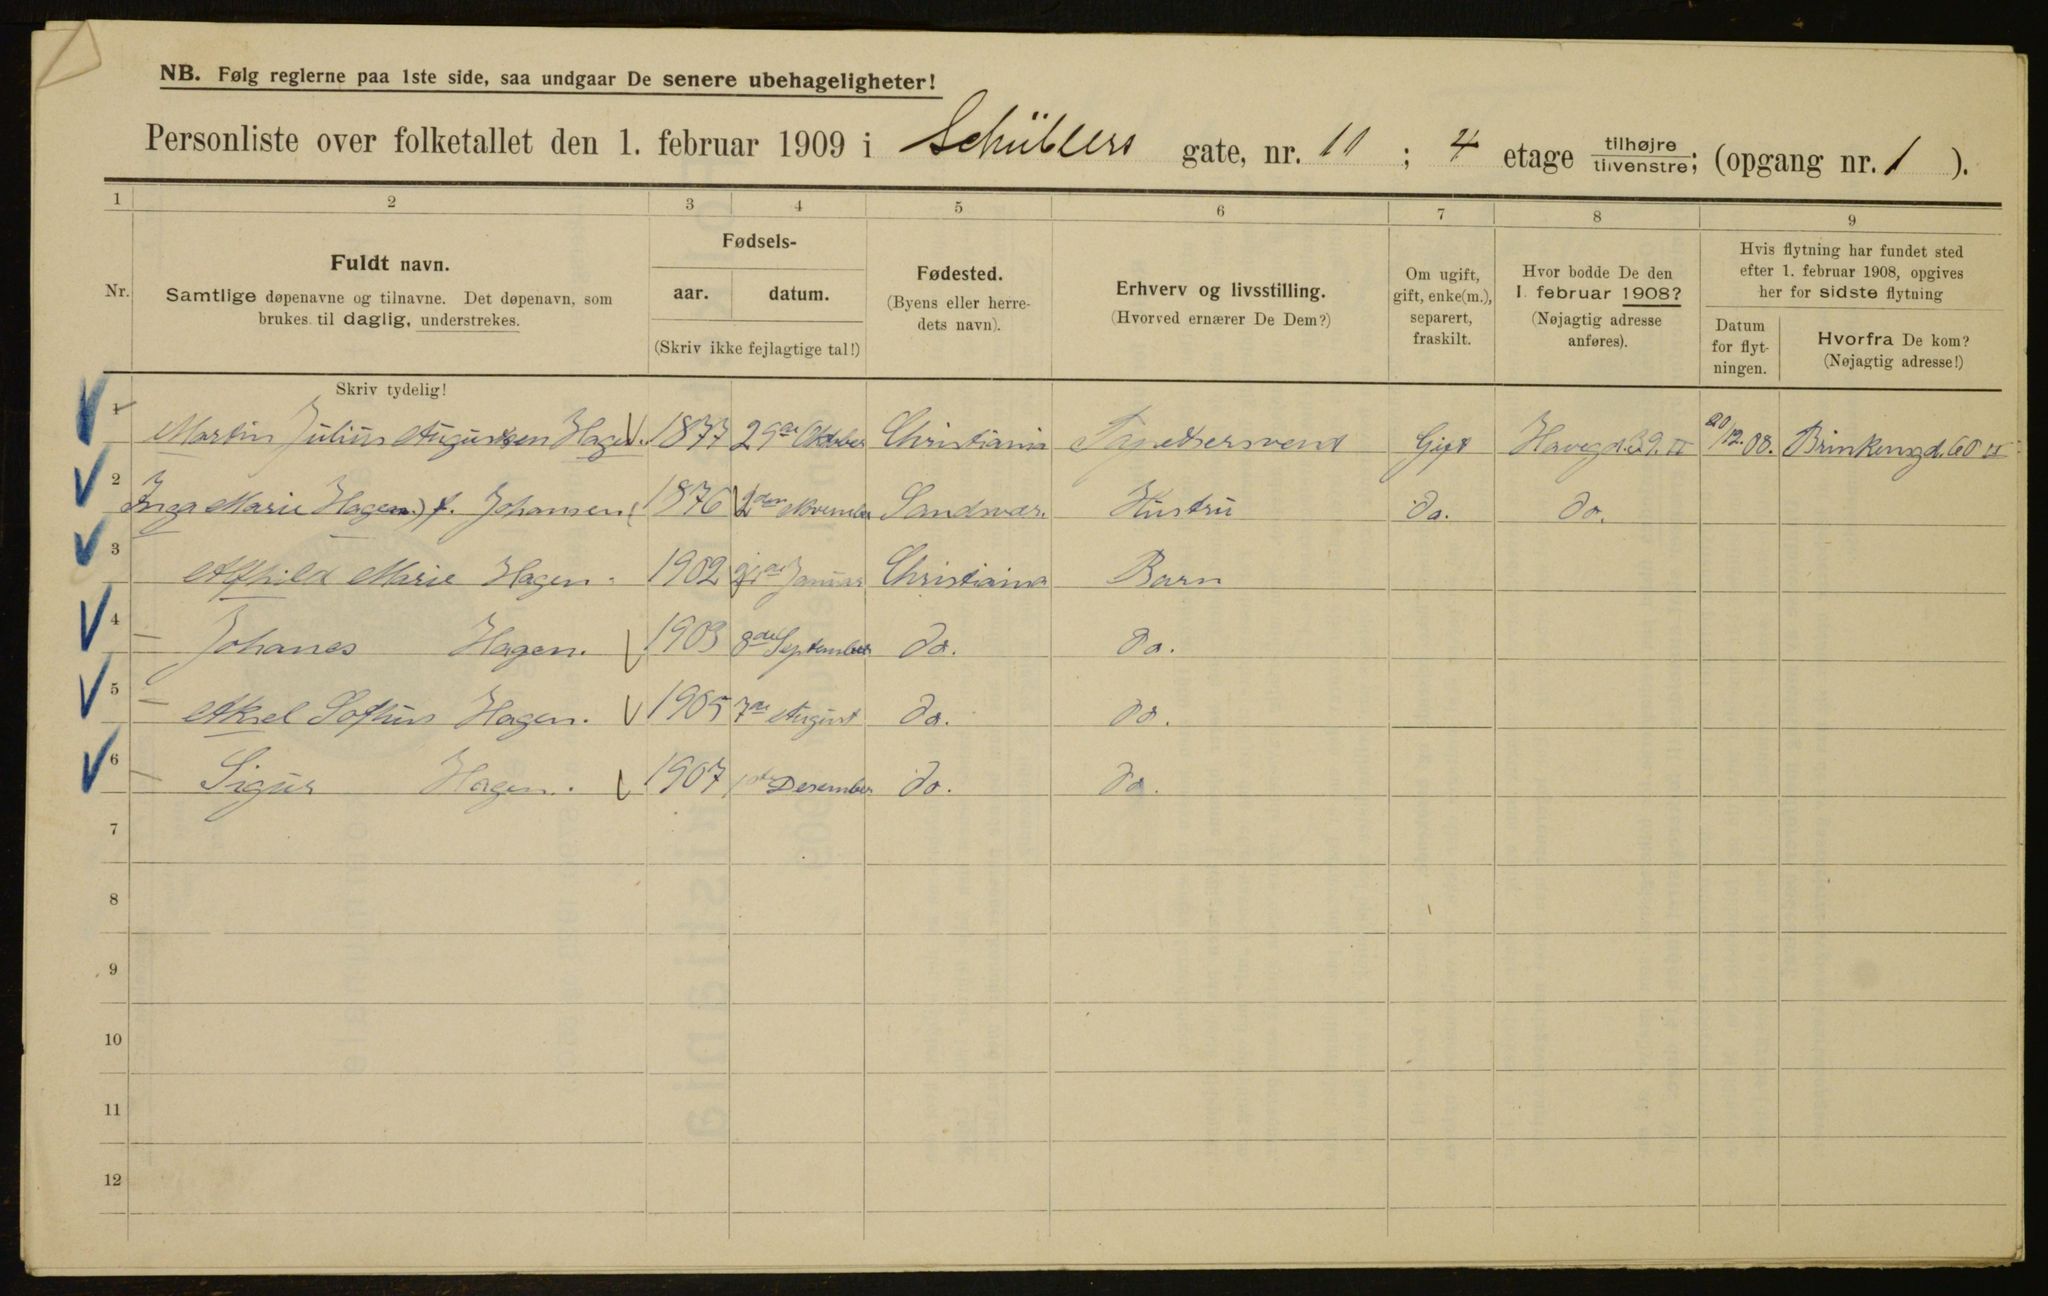 NB. Følg reglerne paa 1ste side, saa undgaar De senere ubehageligheter!
Personliste over folketallet den 1. februar 1909 i Schüblers gate, nr. 11 ; 4 etage tilhøjre tilvenstre; (opgang nr. 1 ).
1 2 3 4 5 6 7 8 9
Nr.
Fuldt navn.
Samtlige døpenavne og tilnavne. Det døpenavn, som
brukes til daglig, understrekes.
Fødsels-
aar. datum.
(Skriv ikke fejlagtige tal!)
Fødested.
(Byens eller herre-
dets navn).
Erhverv og livsstilling.
(Hvorved ernærer De Dem?)
Om ugift,
gift, enke(m.),
separert,
fraskilt.
Hvor bodde De den
1. februar 1908?
(Nøjagtig adresse
anføres).
Hvis flytning har fundet sted
efter 1. februar 1908, opgives
her for sidste flytning
Datum
for flyt-
ningen.
Hvorfra De kom?
(Nøjagtig adresse!)
Skriv tydelig!
1 Martin Julius Augustsen Hagen. 1877 29de Oktober Christiania Tapetsersvend Gift Havegd. 39. II 20/12. 08. Brinkensgd. 60 II
2 Inga Marie Hagen) f. Johansen( 1876 2den November Sandsvær. Hustru do. do.
3 Alfhild Marie Hagen. 1902 Januar Christiania Barn
4 Johanes Hagen. 1903 8de September do. do.
5 Aksel Sofhus Hagen. 1905 7de August do. do.
6 Sigur Hagen. 1907 1ste Desember do. do.
7
8
9
10
11
12